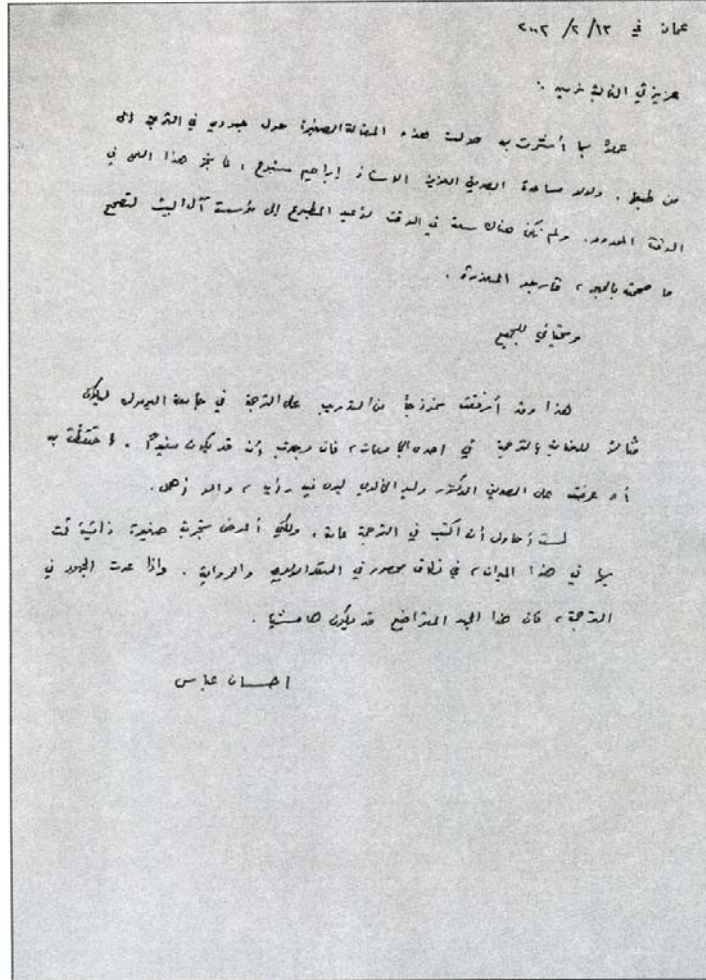 عمان في ١٣/ ٢/ ٢٠٠٢
عزيزتي الغالية نرمين :
عملاً بما أشرت به حولت هذه المقالة الصغيرة حول جهودي في الترجمة إلى
من طبعها . ولولا مساعدة الصديق العزيز الاستاذ إبراهيم شبوح ، لما نجز هذا العمل في
الوقت المحدود. ولم تكن هناك سعة في الوقت لأعيد المطبوع إلى مؤسسة آل البيت لتصحح
ما صححته بالحبر ، فأرجو المعذرة .
وتحياتي للجميع
هذا وقد أرفقت نموذجاً من التدريب على الترجمة في جامعة اليرموك ليكون
مثالاً للعناية بالترجمة في احدى الجامعات ، فان وجدت أن قد يكون مفيداً ، احتفظت به
أو عرضته على الصديق الدكتور وليد الخالدي ليرى فيه رأيه ،
لست أحاول أن أكتب في الترجمة عامة ، ولكني أعرض تجربة صغيرة ذاتية قمت
بها في هذا الميدان ، في نطاق محصور في النقد الأدبي والرواية . واذا عدت الجهود في
الترجمة ، فان هذا الجهد المتواضع قد يكون هامشيا .
احسان عباس